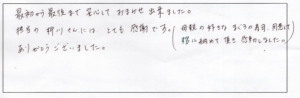 最初から最後まで安心しておまかせ出来ました。
担当の柳川さんには、とても感謝です。
ありがとうございました。
(母親の好きな まぐろの寿司、用意して
棺に納めて頂き感動しました。)